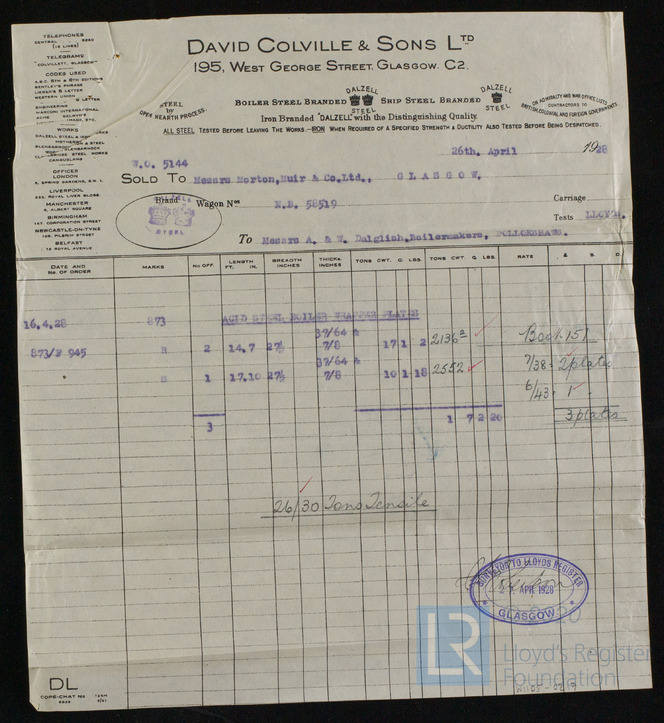 TELEPHONES
CENTRAL 5260
(10 LINES)
TELEGRAMS
"COLVILLETT, GLASGOW"
CODES USED
A.B.C. 5TH & 6TH EDITIONS
BENTLEY'S PHRASE
LIEBER'S 5 LETTER
WESTERN UNION 5 LETTER
ENGINEERING
MARCONI INTERNATIONAL
WORKS
DALZELL STEEL &
MOTHERWELL
GLENGARNOCK
CAMBUSLANG
OFFICES
LONDON
LIVERPOOL
MANCHESTER
BIRMINGHAM
NEWCASTLE-ON-TYNE
BELFAST
DAVID COLVILLE & SONS LTD
195, WEST GEORGE STREET, GLASGOW. C2.
STEEL
by
OPEN HEARTH PROCESS.
BOILER STEEL BRANDED DALZELL STEEL SHIP STEEL BRANDED DALZELL STEEL
ON ADMIRALTY AND WAR OFFICE LISTS
CONTRACTORS TO
BRITISH, COLONIAL AND FOREIGN GOVERNMENTS
Iron Branded "DALZELL" with the Distinguishing Quality.
ALL STEEL TESTED BEFORE LEAVING THE WORKS—IRON WHEN REQUIRED OF A SPECIFIED STRENGTH & DUCTILITY ALSO TESTED BEFORE BEING DESPATCHED.
26th. April 1928
W.O. 5144
SOLD TO Messrs Morton, Muir & Co. Ltd., GLASGOW.
Brand DALZELL STEEL Wagon Nos N.B. 58519 Carriage
Tests LLOYD'S.
To Messrs A. & W. Dalglish, Boilermakers, POLLOKSHAWS.
DATE AND No. OF ORDER MARKS No OFF. LENGTH FT. IN. BREADTH INCHES THICKS. INCHES TONS CWT. Q. LBS. TONS CWT. Q. LBS. RATE £ S. D.
16.4.28 873 ACID STEEL BOILER WRAPPER PLATES
37/64 &
873/ 945 2 14.7 7/8 17 1 2 Book 151
37/64 &
1 17.10 7/8 10 1 18 2552 7/38 - 2 plates
6/43 - 1 -
3 1 7 2 20 3 plates
26/30 Tons Tensile
SURVEYOR TO LLOYDS REGISTER
APR. 1928
GLASGOW
LR
Lloyd's Register
Foundation
DL
COPE-CHAT No